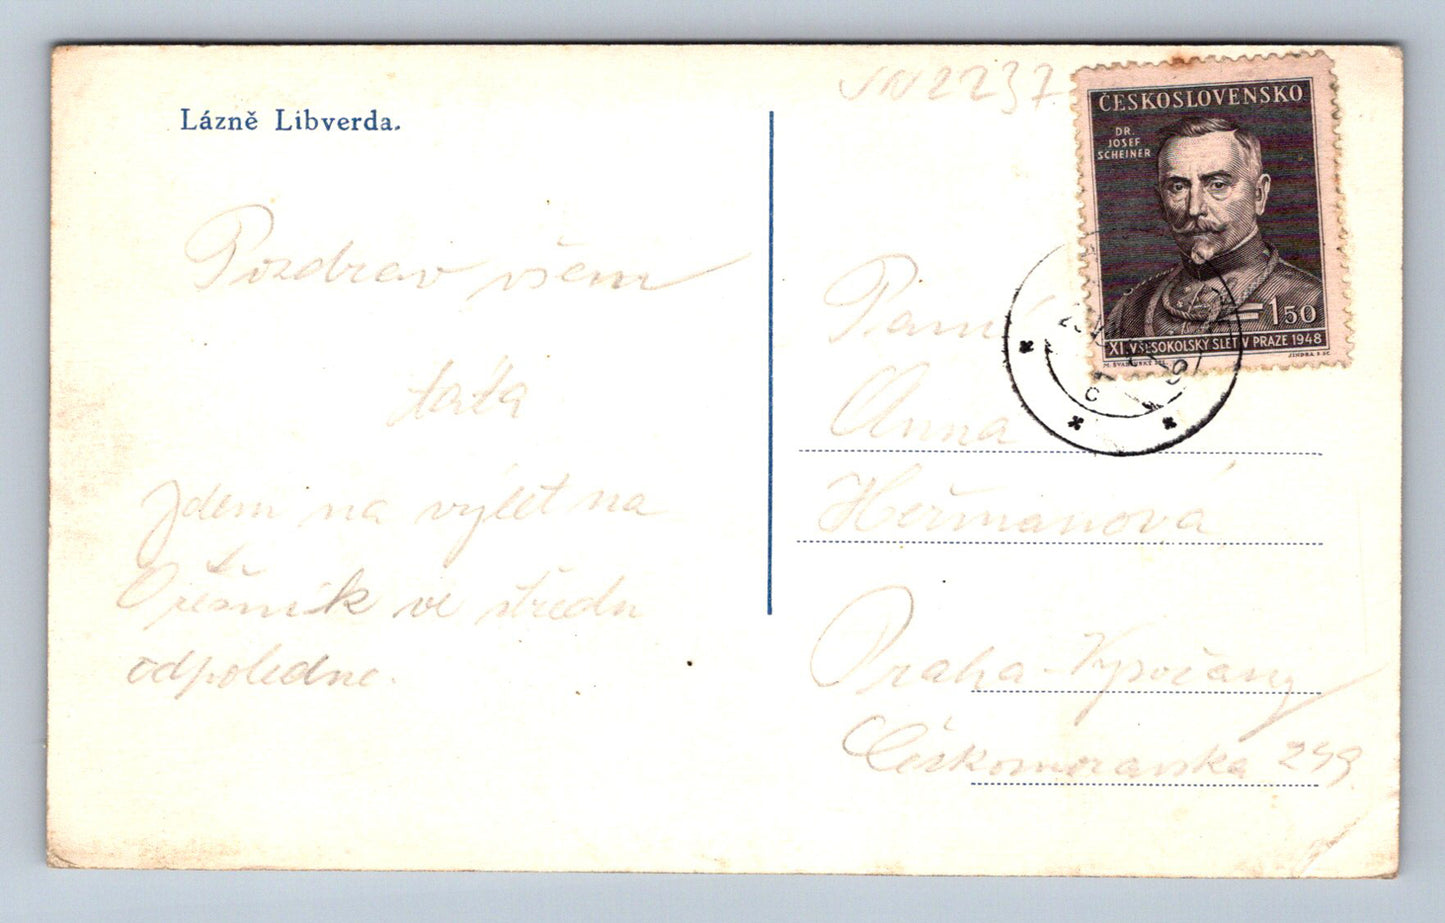 Lázně Libverda.
VN2237
ČESKOSLOVENSKO
DR.
JOSEF
SCHEINER
1 50
XI. VŠESOKOLSKÝ SLET V PRAZE 1948
JINDRA SC.
Pozdrav všem
táta
Jdem na výlet na
Ořešník ve středu
odpoledne.
Paní
Anna
Heřmanová
Praha-Vysočany
Českomoravská 249